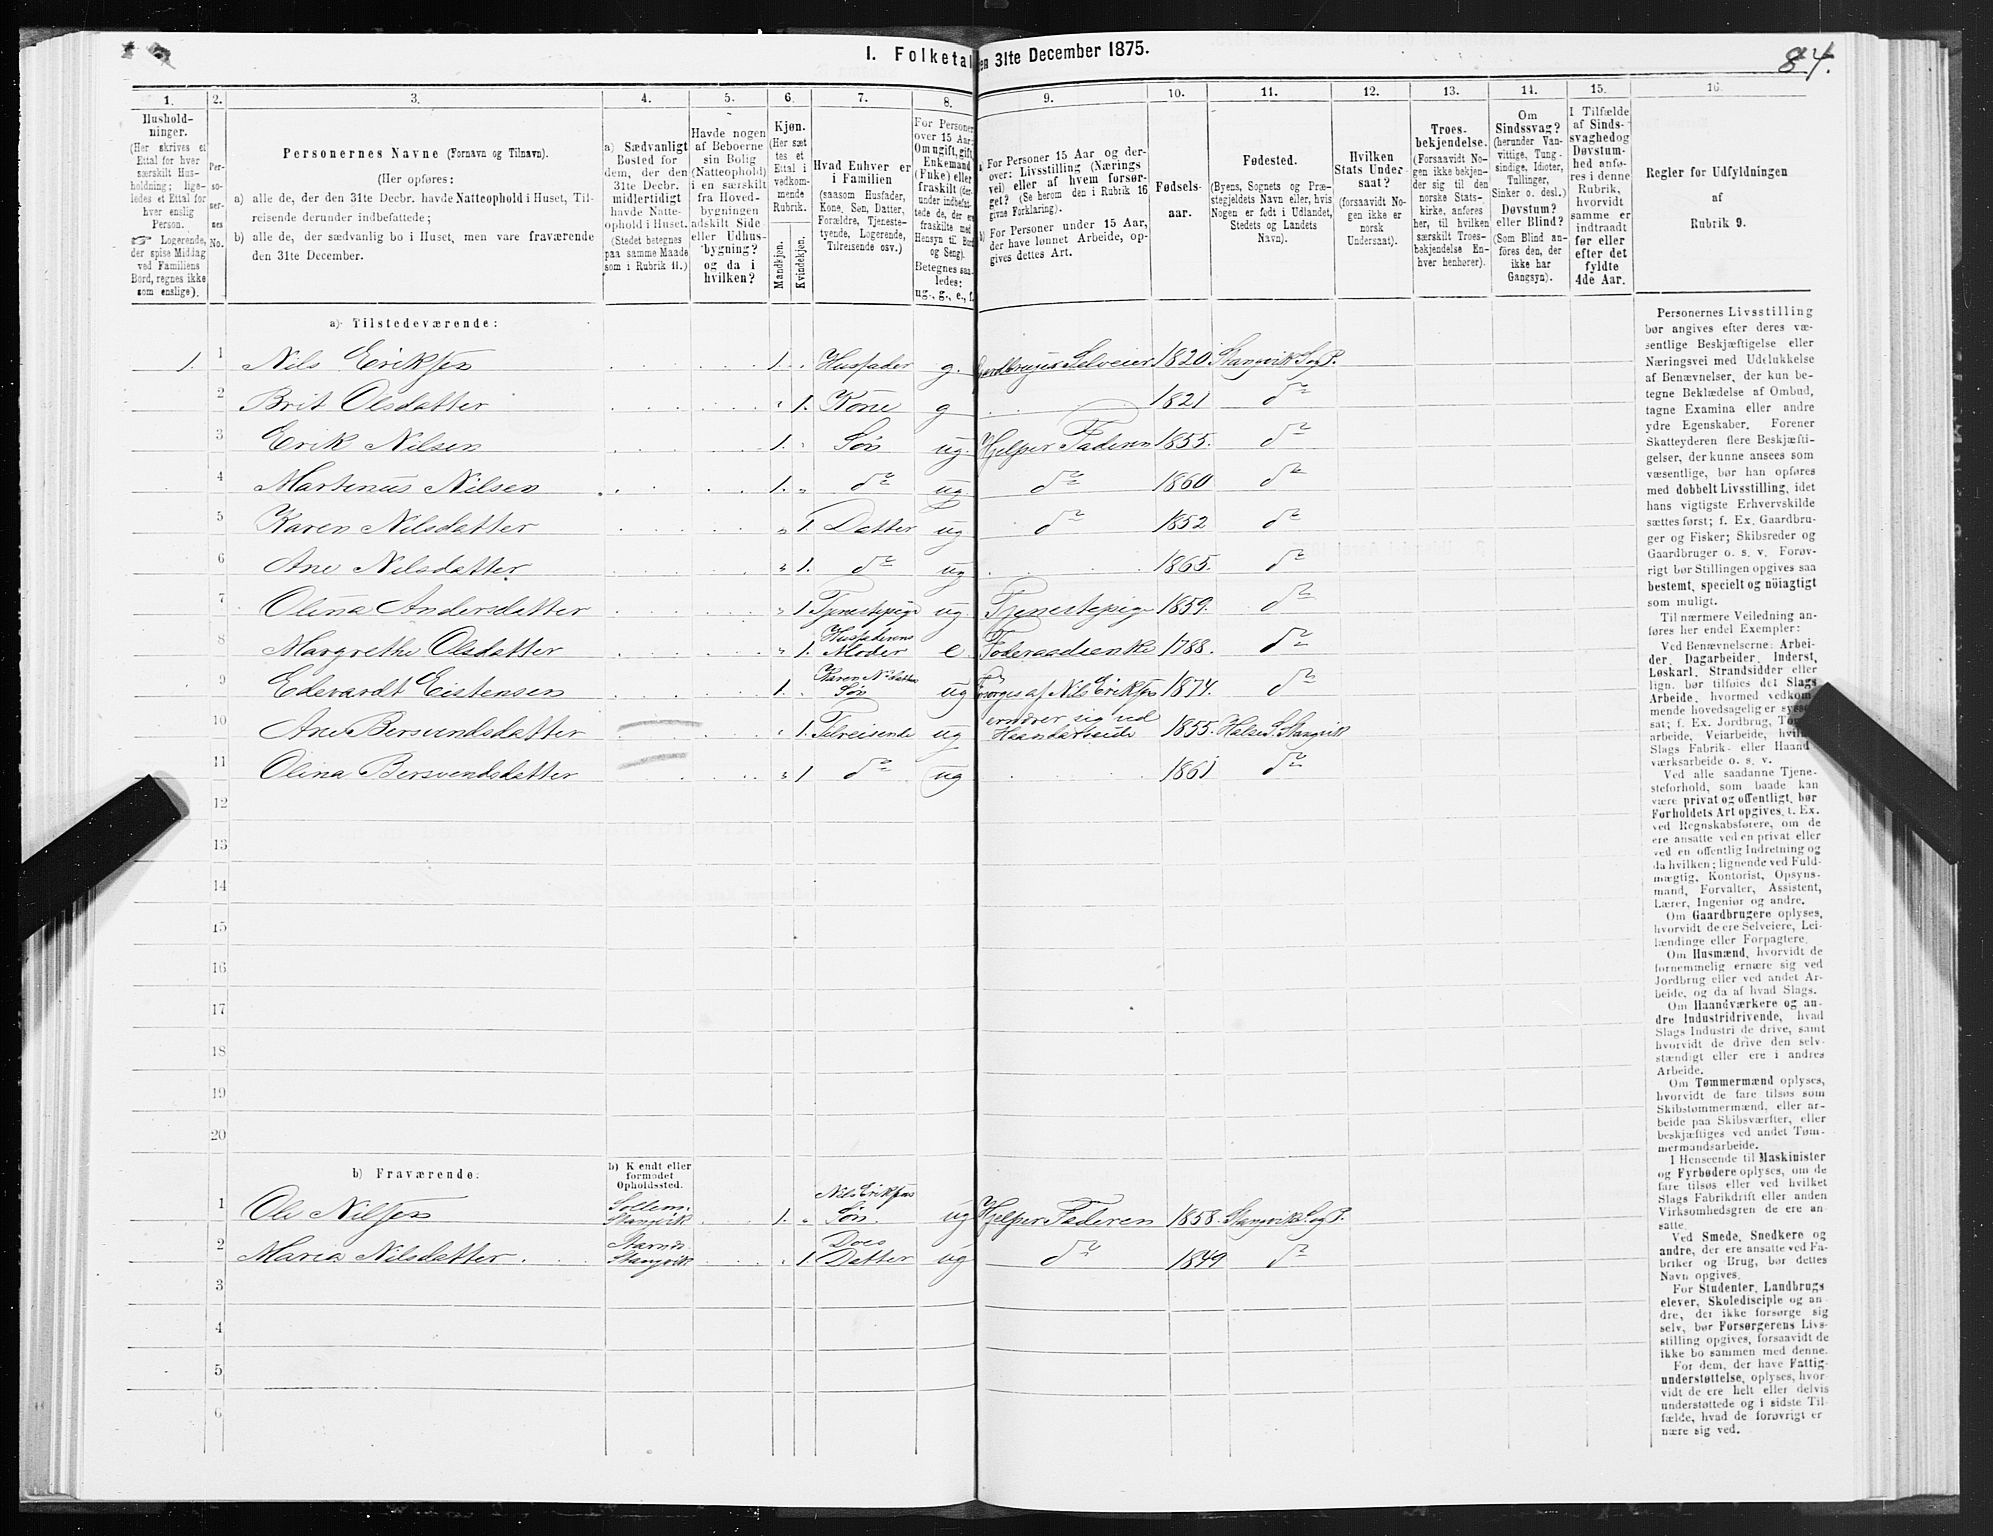 I. Folketal den 31te December 1875.
84.
1. 2. 3. 4. 5. 6. 7. 8. 9. 10. 11. 12. 13. 14. 15. 16.
Hushold-
ninger.
(Her skrives et
Ettal for hver
særskilt Hus-
holdning; lige-
ledes et Ettal for
hver enslig
Person.
☞ Logerende,
der spise Middag
ved Familiens
Bord, regnes ikke
som enslige).
Per-
so-
ner-
nes
No.
Personernes Navne (Fornavn og Tilnavn).
(Her opføres:
a) alle de, der den 31te Decbr. havde Natteophold i Huset, Til-
reisende derunder indbefattede;
b) alle de, der sædvanlig bo i Huset, men vare fraværende
den 31te December.
a) Sædvanligt
Bosted for
dem, der den
31te Decbr.
midlertidigt
havde Natte-
ophold i Huset.
(Stedet betegnes
paa samme Maade
som i Rubrik 11.)
Havde nogen
af Beboerne
sin Bolig
(Natteophold)
i en særskilt
fra Hoved-
bygningen
adskilt Side-
eller Udhus-
bygning?
og da i
hvilken?
Kjøn.
(Her sættes et
Ettal i
vedkom-
mende
Rubrik.
Mandkjøn.
Kvindekjøn.
Hvad Enhver er
i Familien
(saasom Husfader,
Kone, Søn, Datter,
Forældre, Tjeneste-
tyende, Logerende,
Tilreisende osv.)
For Personer
over 15 Aar:
Om ugift, gift,
Enkemand
(Enke) eller
fraskilt (der-
under indbefat-
tede de, der ere
fraskilte med
Hensyn til Bord
og Seng).
Betegnes saa-
ledes:
ug., g., e., f.
a) For Personer 15 Aar og der-
over: Livsstilling (Nærings-
vei) eller af hvem forsør-
get? (Se herom den i Rubrik 16
givne Forklaring).
b) For Personer under 15 Aar,
der have lønnet Arbeide, op-
gives dettes Art.
Fødsels-
aar.
Fødested.
(Byens, Sognets og Præ-
stegjeldets Navn eller, hvis
Nogen er født i Udlandet,
Stedets og Landets
Navn).
Hvilken
Stats Under-
saat?
(forsaavidt No-
gen ikke er
norsk
Undersaat).
Troes-
bekjendelse.
(Forsaavidt No-
gen ikke bekjen-
der sig til den
norske Stats-
kirke, anføres
her, til hvilken
særskilt Troes-
bekjendelse En-
hver henhører).
Om
Sindssvag?
(herunder Van-
vittige, Tung-
sindige, Idioter,
Tullinger,
Sinker o. desl.)
Døvstum?
eller Blind?
(Som Blind an-
føres den, der
ikke har
Gangsyn).
I Tilfælde
af Sinds-
svaghed og
Døvstum-
hed anfø-
res i denne
Rubrik,
hvorvidt
samme er
indtraadt
før eller
efter det
fyldte
4de Aar.
Regler for Udfyldningen
af
Rubrik 9.
a) Tilstedeværende:
1. 1 Nils Eriksen 1. Husfader g. Gaardbruger Selveier 1820 Stangvik S. og P.
2 Brit Olsdatter 1. Kone g 1821 do
3 Erik Nilsen 1. Søn ug. Hjelper Faderen 1855. do
4 Martinus Nilsen 1. do ug do 1860 do
5 Karen Nilsdatter 1. Datter ug do 1852 do
6 Ane Nilsdatter 1. do ug 1865. do
7 Olina Andersdatter 1. Tjenestepige ug Tjenestepige 1859. do
8 Margrethe Olsdatter 1. Husfaderens Moder e. Føderaadsenke 1788. do
9 Edevardt Eistensen 1. Karen N.datters Søn ug Forsørges af Nils Eriksen 1874. do
10 Ane Bersvendsdatter 1. Tilreisende ug ernærer sig ved Haandarbeide 1855. Halse S. Stangvik
11 Olina Bersvendsdatter 1 do ug 1861 do
12
13
14
15
16
17
18
19
20
b) Fraværende:
b) Kendt eller
formodet
Opholdssted.
1 Ole Nilsen Stangvik 1. Nils Eriksens Søn. ug Hjelper Faderen 1858. Stangvik S. og P.
2 Maria Nilsdatter Stangvik 1. Do's Datter ug do 1849 do
3
4
5
6
Personernes Livsstilling
bør angives efter deres væ-
sentlige Beskjæftigelse eller
Næringsvei med Udelukkelse
af Benævnelser, der kun be-
tegne Beklædelse af Ombud,
tagne Examina eller andre
ydre Egenskaber. Forener
Skatteyderen flere Beskjæfti-
gelser, der kunne ansees som
væsentlige, bør han opføres
med dobbelt Livsstilling, idet
hans vigtigste Erhvervskilde
sættes først; f. Ex. Gaardbru-
ger og Fisker; Skibsreder og
Gaardbruger o. s. v. Forøv-
rigt bør Stillingen opgives saa
bestemt, specielt og nöiagtigt
som muligt.
Til nærmere Veiledning an-
føres her endel Exempler:
Ved Benævnelserne: Arbei-
der, Dagarbeider, Inderst,
Løskarl, Strandsidder eller
lign. bør tilføies det Slags
Arbeide, hvormed vedkom-
mende hovedsagelig er syssel-
sat; f. Ex. Jordbrug, Tom-
arbeide, Veiarbeide, hvilket
Slags Fabrik- eller Haand-
værksarbeide o. s. v.
Ved alle saadanne Tjene-
steforhold, som baade kan
være privat og offentligt, bør
Forholdets Art opgives, t. Ex.
ved Regnskabsførere, om de
ere ansatte ved en privat eller
ved en offentlig Indretning og
da hvilken; lignende ved Fuld-
mægtig, Kontorist, Opsyns-
mand, Forvalter, Assistent,
Lærer, Ingeniør og andre.
Om Gaardbrugere oplyses,
hvorvidt de ere Selveiere, Lei-
lændinge eller Forpagtere.
Om Husmænd, hvorvidt de
fornemmelig ernære sig ved
Jordbrug eller ved andet Ar-
beide, og da af hvad Slags.
Om Haandværkere og an-
dre Industridrivende, hvad
Slags Industri de drive, samt
hvorvidt de drive den selv-
stændigt eller ere i andres
Arbeide.
Om Tømmermænd oplyses,
hvorvidt de fare tilsøs som
Skibstømmermænd, eller ar-
beide paa Skibsværfter, eller
beskjæftiges ved andet Tøm-
mermandsarbeide.
I Henseende til Maskinister
og Fyrbødere oplyses, om de
fare tilsøs eller ved hvilket
Slags Fabrikdrift eller anden
Virksomhedsgren de ere an-
satte.
Ved Smede, Snedkere og
andre, der ere ansatte ved Fa-
briker og Brug, bør dettes
Navn opgives.
For Studenter, Landbrugs-
elever, Skoledisciple og an-
dre, der ikke forsørge sig
selv, bør Forsørgerens Livs-
stilling opgives, forsaavidt de
ikke bo sammen med denne.
For dem, der have Fattig-
understøttelse, oplyses, hvor-
vidt de ere helt eller delvis
understøttede og i sidste Til-
fælde, hvad de forøvrigt er
nære sig ved.